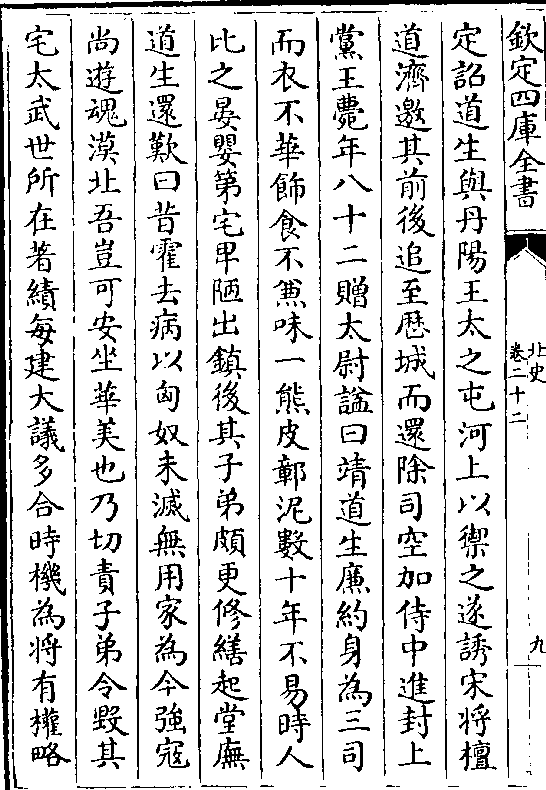 欽定四庫全書
北史
卷二十二
九
定詔道生與丹陽王太之屯河上以禦之遂誘宋將檀
道濟邀其前後追至歴城而還除司空加侍中進封上
黨王薨年八十二贈太尉諡曰靖道生廉約身為三司
而衣不華飾食不兼味一熊皮鄣泥數十年不易時人
比之晏嬰第宅卑陋出鎮後其子弟頗更修繕起堂廡
道生還歎曰昔霍去病以匈奴未滅無用家為今強寇
尚遊魂漠北吾豈可安坐華美也乃切責子弟令毁其
宅太武世所在著績每建大議多合時機為將有權略